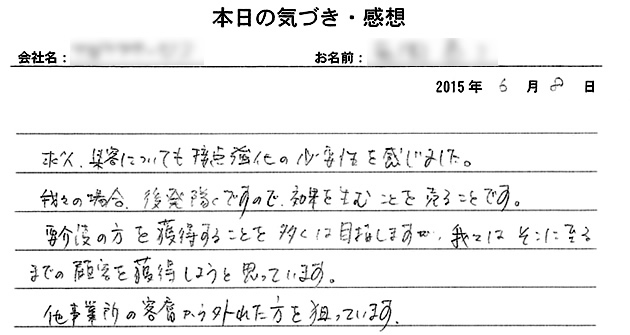 本日の気づき・感想
会社名： お名前：
2015年 6月 8日
求人、集客についても接点強化の必要性を感じました。
我々の場合、後発隊ですので、効果を生むことを売ることです。
要介護の方を獲得することを多くは目指しますが、我々はそこに至る
までの顧客を獲得しようと思っています。
他事業所の客層から外れた方を狙っています。